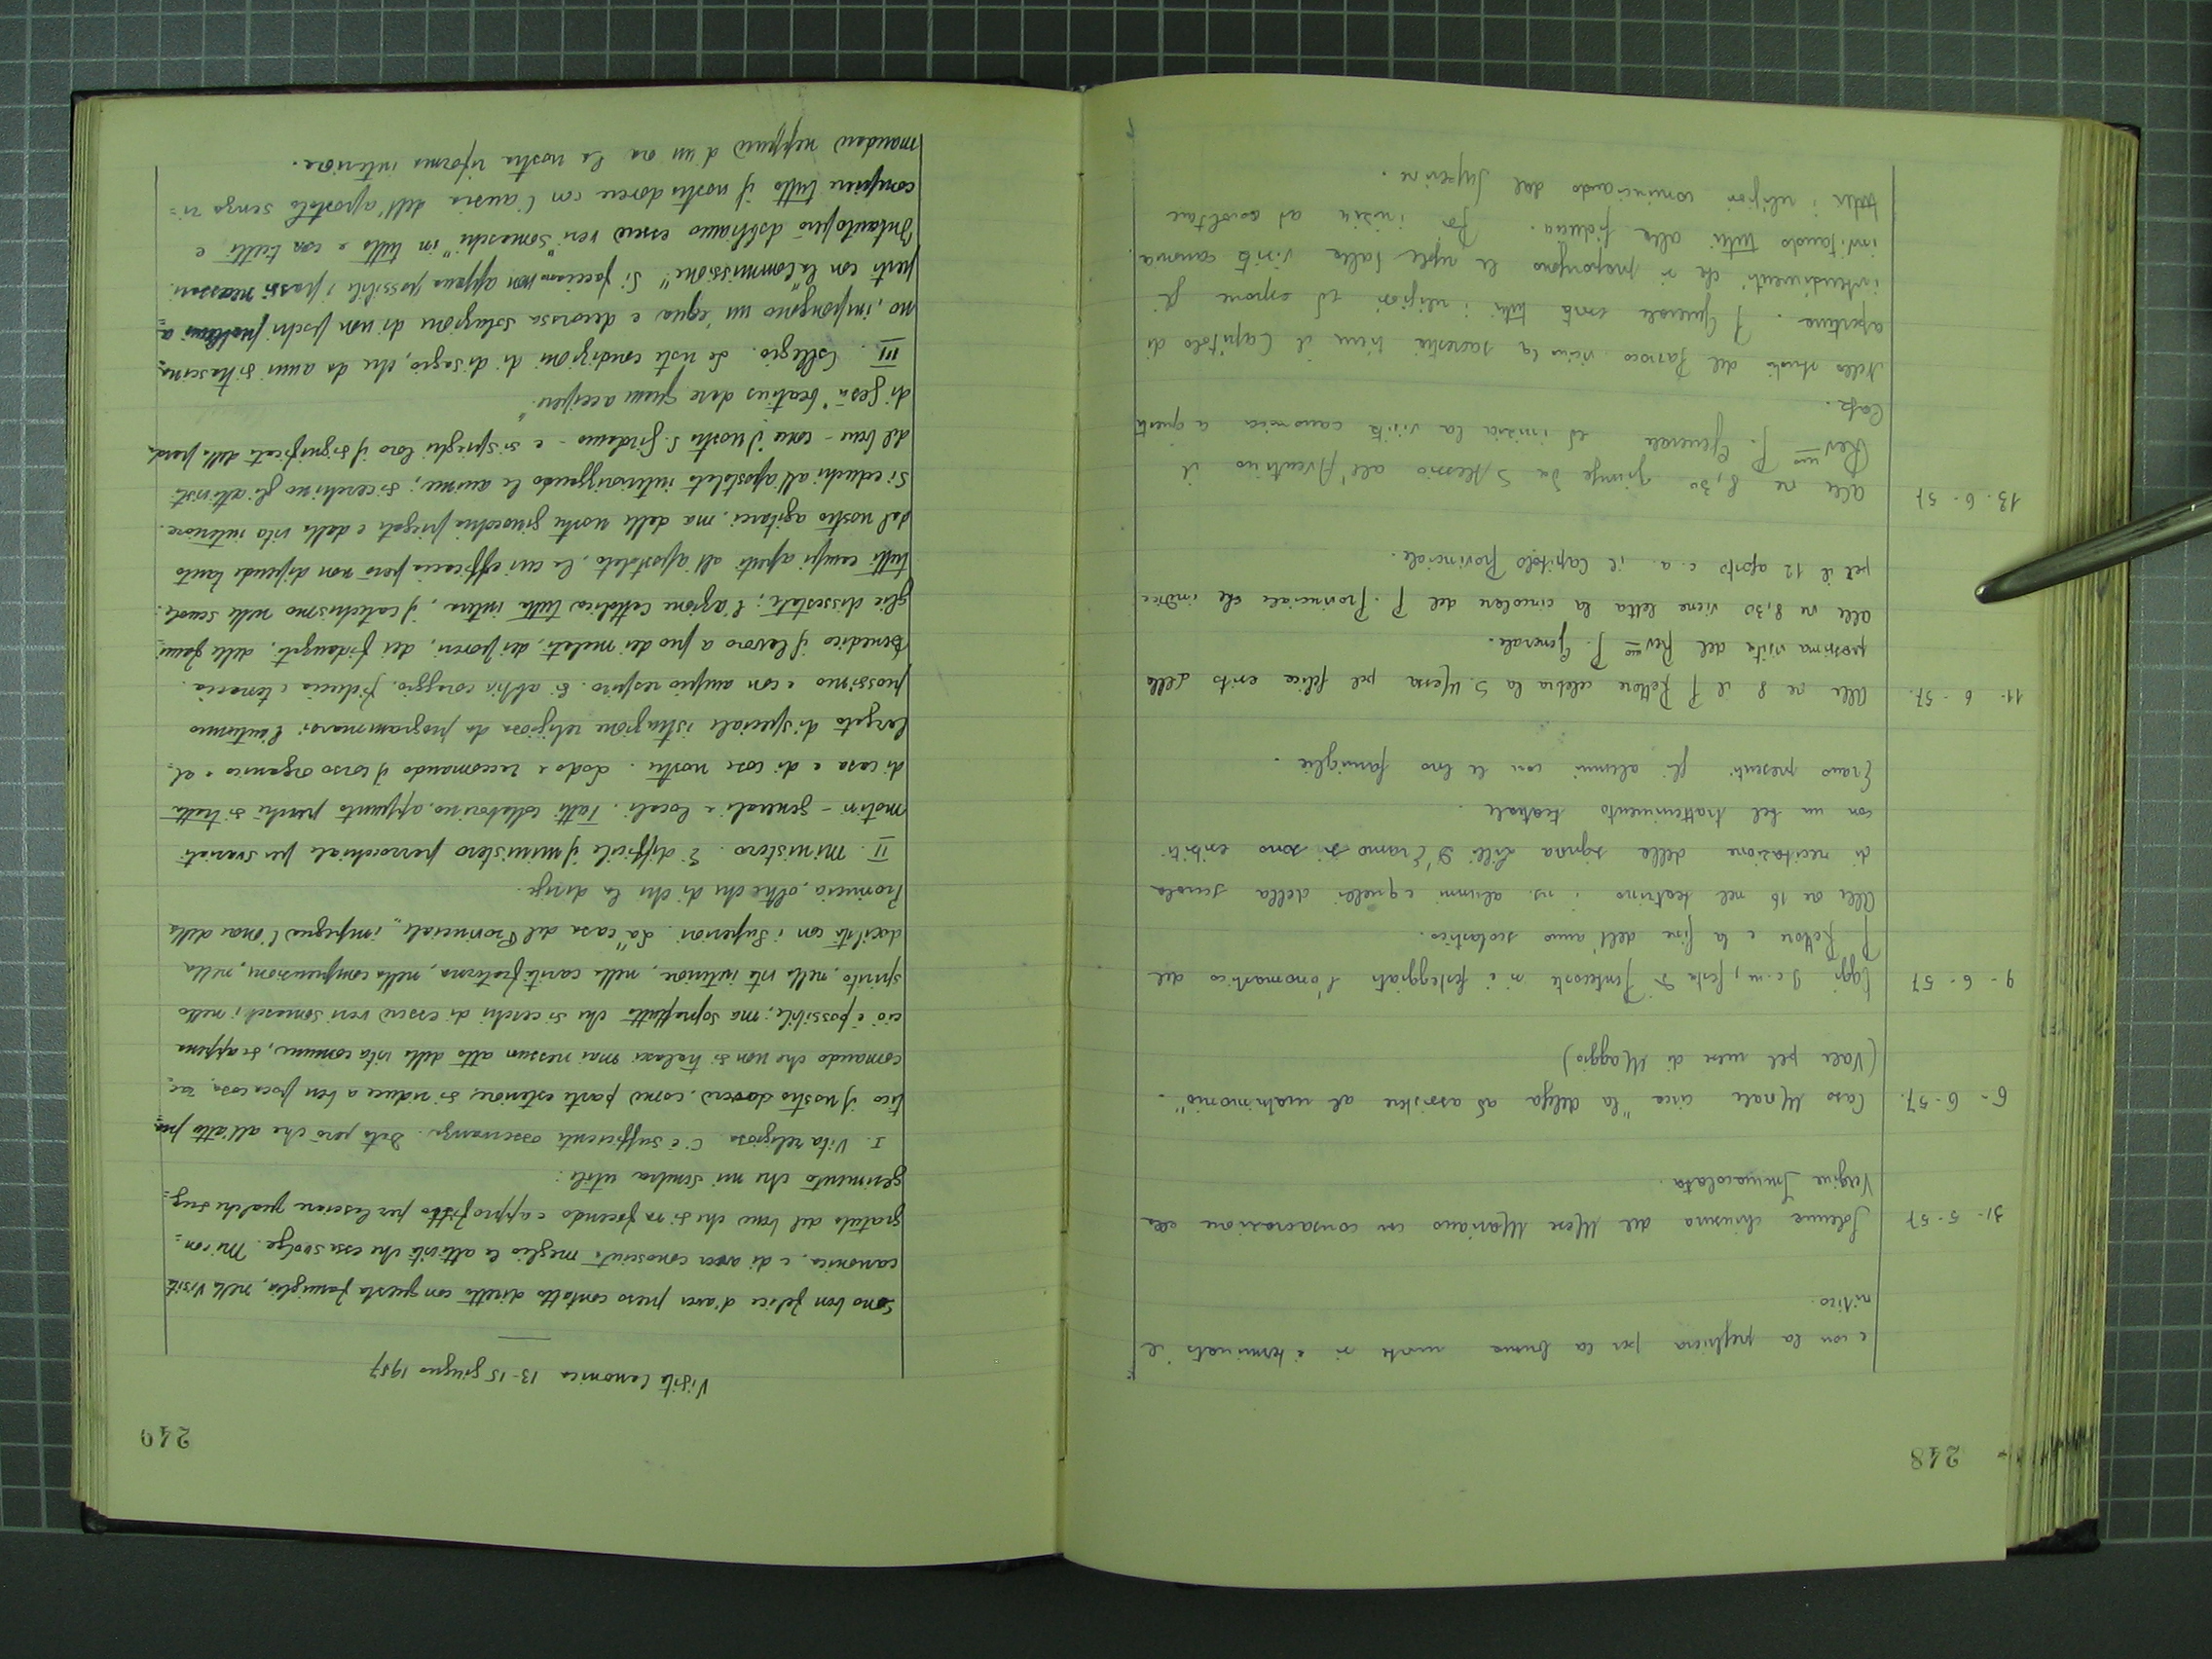 248
e con la preghiera per la buona morte si è terminato il
ritiro.
31-5-57 Solenne chiusura del Mese Mariano con consacrazione alla
Vergine Immacolata.
6-6-57. Caso Morale circa "la delega ad assistere al matrimonio".
(Vale pel mese di Maggio)
9-6-57 Oggi 9 c.m., festa di Pentecoste si è festeggiato l'onomastico del
P. Rettore e la fine dell'anno scolastico.
Alle ore 16 nel teatrino i ns. alunni e quelli della scuola
di recitazione della signora Lilli D'Eramo si sono esibiti
con un bel trattenimento teatrale.
Erano presenti gli alunni con le loro famiglie.
11-6-57. Alle ore 8 il P. Rettore celebra la S. Messa pel felice esito della
prossima visita del Rev.mo P. Generale.
Alle ore 8,30 viene letta la circolare del P. Provinciale che indice
pel il 12 agosto c.a. il Capitolo Provinciale.
13-6-57 Alle ore 8,30 giunge da S. Alessio all'Aventino il
Rev.mo P. Generale ed inizia la visita canonica a questa
Casa.
Nello studio del Parroco vicino la sacrestia tiene il Capitolo di
apertura. Il P. Generale esorta tutti i religiosi ed espone gli
intendimenti che si propongono le regole sulla visita canonica
invitando tutti alla fiducia. Poi inizia ad ascoltare
tutti i religiosi cominciando dal Superiore.
249
Visita Canonica 13-15 giugno 1957
Sono ben felice d'aver preso contatto diretto con questa famiglia, nella visita
canonica, e di aver conosciuto meglio le attività che essa svolge. Mi con=
gratulo del bene che si va facendo e approfitto per lasciare qualche sug=
gerimento che mi sembra utile:
I. Vita religiosa. C'è sufficiente osservanza. Dato però che all'atto pra=
tico il nostro dovere, come parte esteriore, si riduce a ben poca cosa, rac=
comando che non si tralasci mai nessun atto della vita comune, se appena
ciò è possibile; ma soprattutto che si cerchi di essere veri somaschi; nello
spirito, nella vita interiore, nella carità fraterna, nella comprensione, nella
docilità con i Superiori. La "casa del Provinciale" impegna l'onore della
Provincia, oltre che di chi la dirige.
II. Ministero. È difficile il ministero parrocchiale per svariati
motivi - generali e locali. Tutti collaborino, appunto perché si tratta
di casa e di cose nostre. Lodo e raccomando il corso organico e al=
largato di speciale istruzione religiosa da programmarsi l'autunno
prossimo e con ampio respiro. Si abbia coraggio, fiducia e tenacia.
Benedico il lavoro a pro dei malati, dei poveri, dei fidanzati, delle fami=
glie dissestate; l'azione Cattolica tutta intera, il catechismo nelle scuole:
tutti campi aperti all'apostolato, la cui efficacia però non dipende tanto
dal nostro agitarci, ma delle nostre ginocchia piegate e della vita interiore.
Si educhi all'apostolato interiorizzando le anime; si cerchino gli attivisti
del bene - come il nostro S. Girolamo - e si spieghi loro il significato della parola
di Gesù "beatius dare quam accipere."
III. Collegio. Le note condizioni di disagio, che da anni si trascina=
no, impongono un'equa e decorosa soluzione di non pochi problemi a=
perti con la "Commissione". Si facciano non appena possibile i passi necessari.
Intanto però dobbiamo essere veri "somaschi" in tutto e con tutti e
compiere tutto il nostro dovere con l'ansia dell'apostolo senza ri=
mandare neppure d'un ora la nostra riforma interiore.